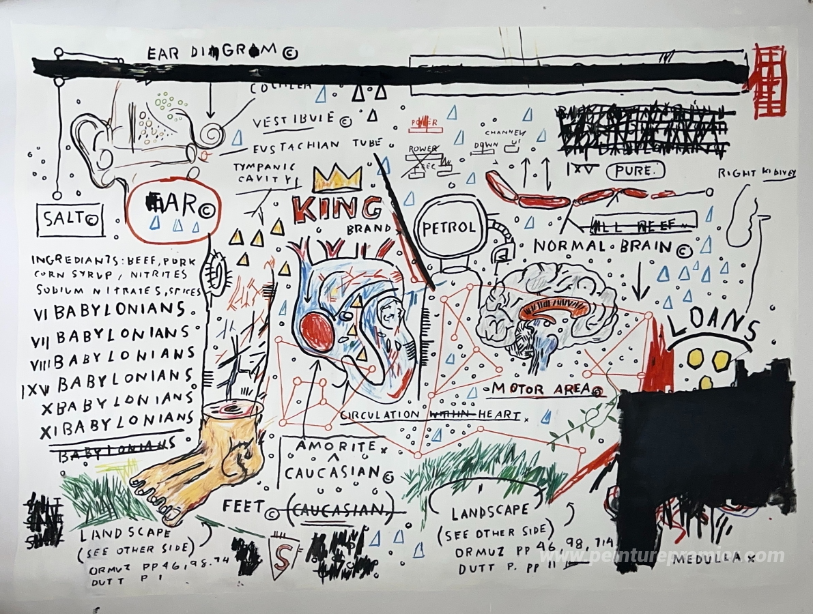 EAR DIAGRAM ©
VESTIBULE ©
EUSTACHIAN TUBE
TYMPANIC
CAVITY
EAR ©
SALT ©
INGREDIANTS: BEEF, PORK
CORN SYRUP, NITRITES
SODIUM NITRATES, SPICES
VI BABYLONIANS.
VII BABYLONIANS
VIII BABYLONIANS.
IXV BABYLONIANS.
X BABYLONIANS.
XI BABYLONIANS
BABYLONIANS
LANDSCAPE
(SEE OTHER SIDE)
ORMUZ PP 46, 98, 74
DUTT P 1
KING
BRAND
POWER
POWER
DOWN
CHANNEL
PETROL
IXV PURE.
ALL BEEF
NORMAL BRAIN ©
RIGHT KIDNEY
LOANS
MOTOR AREA ©
CIRCULATION WITHIN HEART
AMORITE
CAUCASIAN ©
FEET © (CAUCASIAN)
S
LANDSCAPE
(SEE OTHER SIDE)
ORMUZ PP 46, 98, 714
DUTT P. PP 11
MEDULLA
www.peinturepremier.com